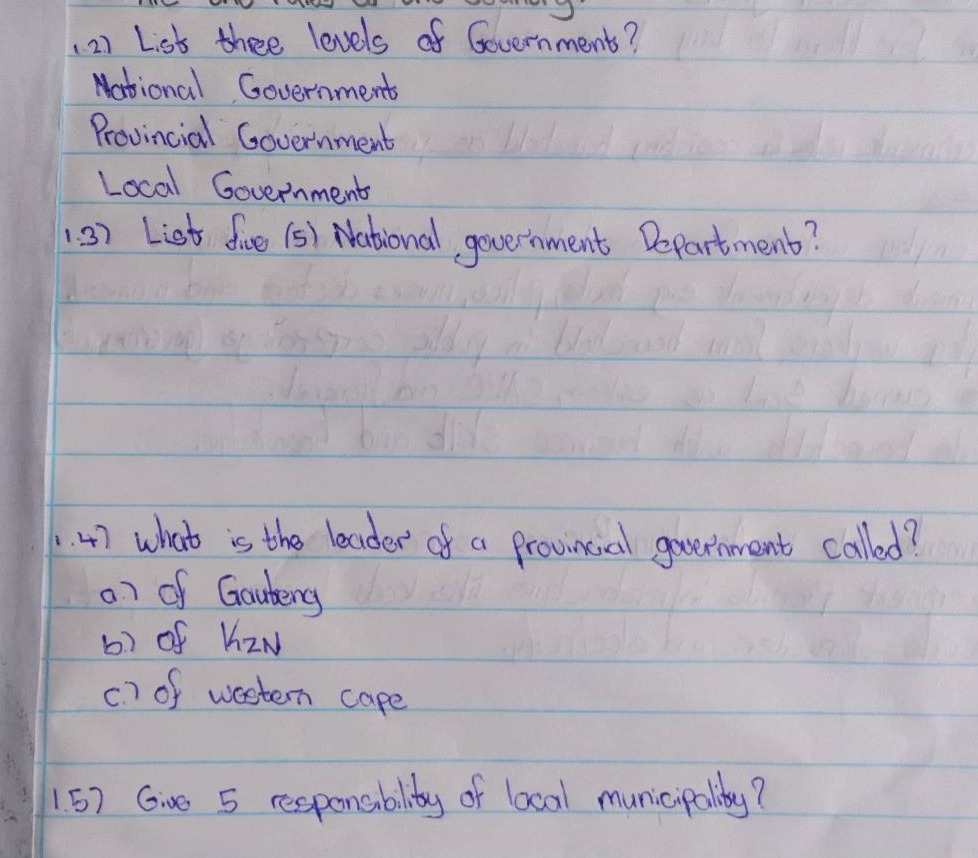 1.2) List three levels of Government?
National Government
Provincial Government
Local Government
1.3) List five (5) National government Department?
1.4) what is the leader of a provincial government called?
a.) of Gauteng
b.) of KZN
c.) of western cape
1.5) Give 5 responsibility of local municipality?